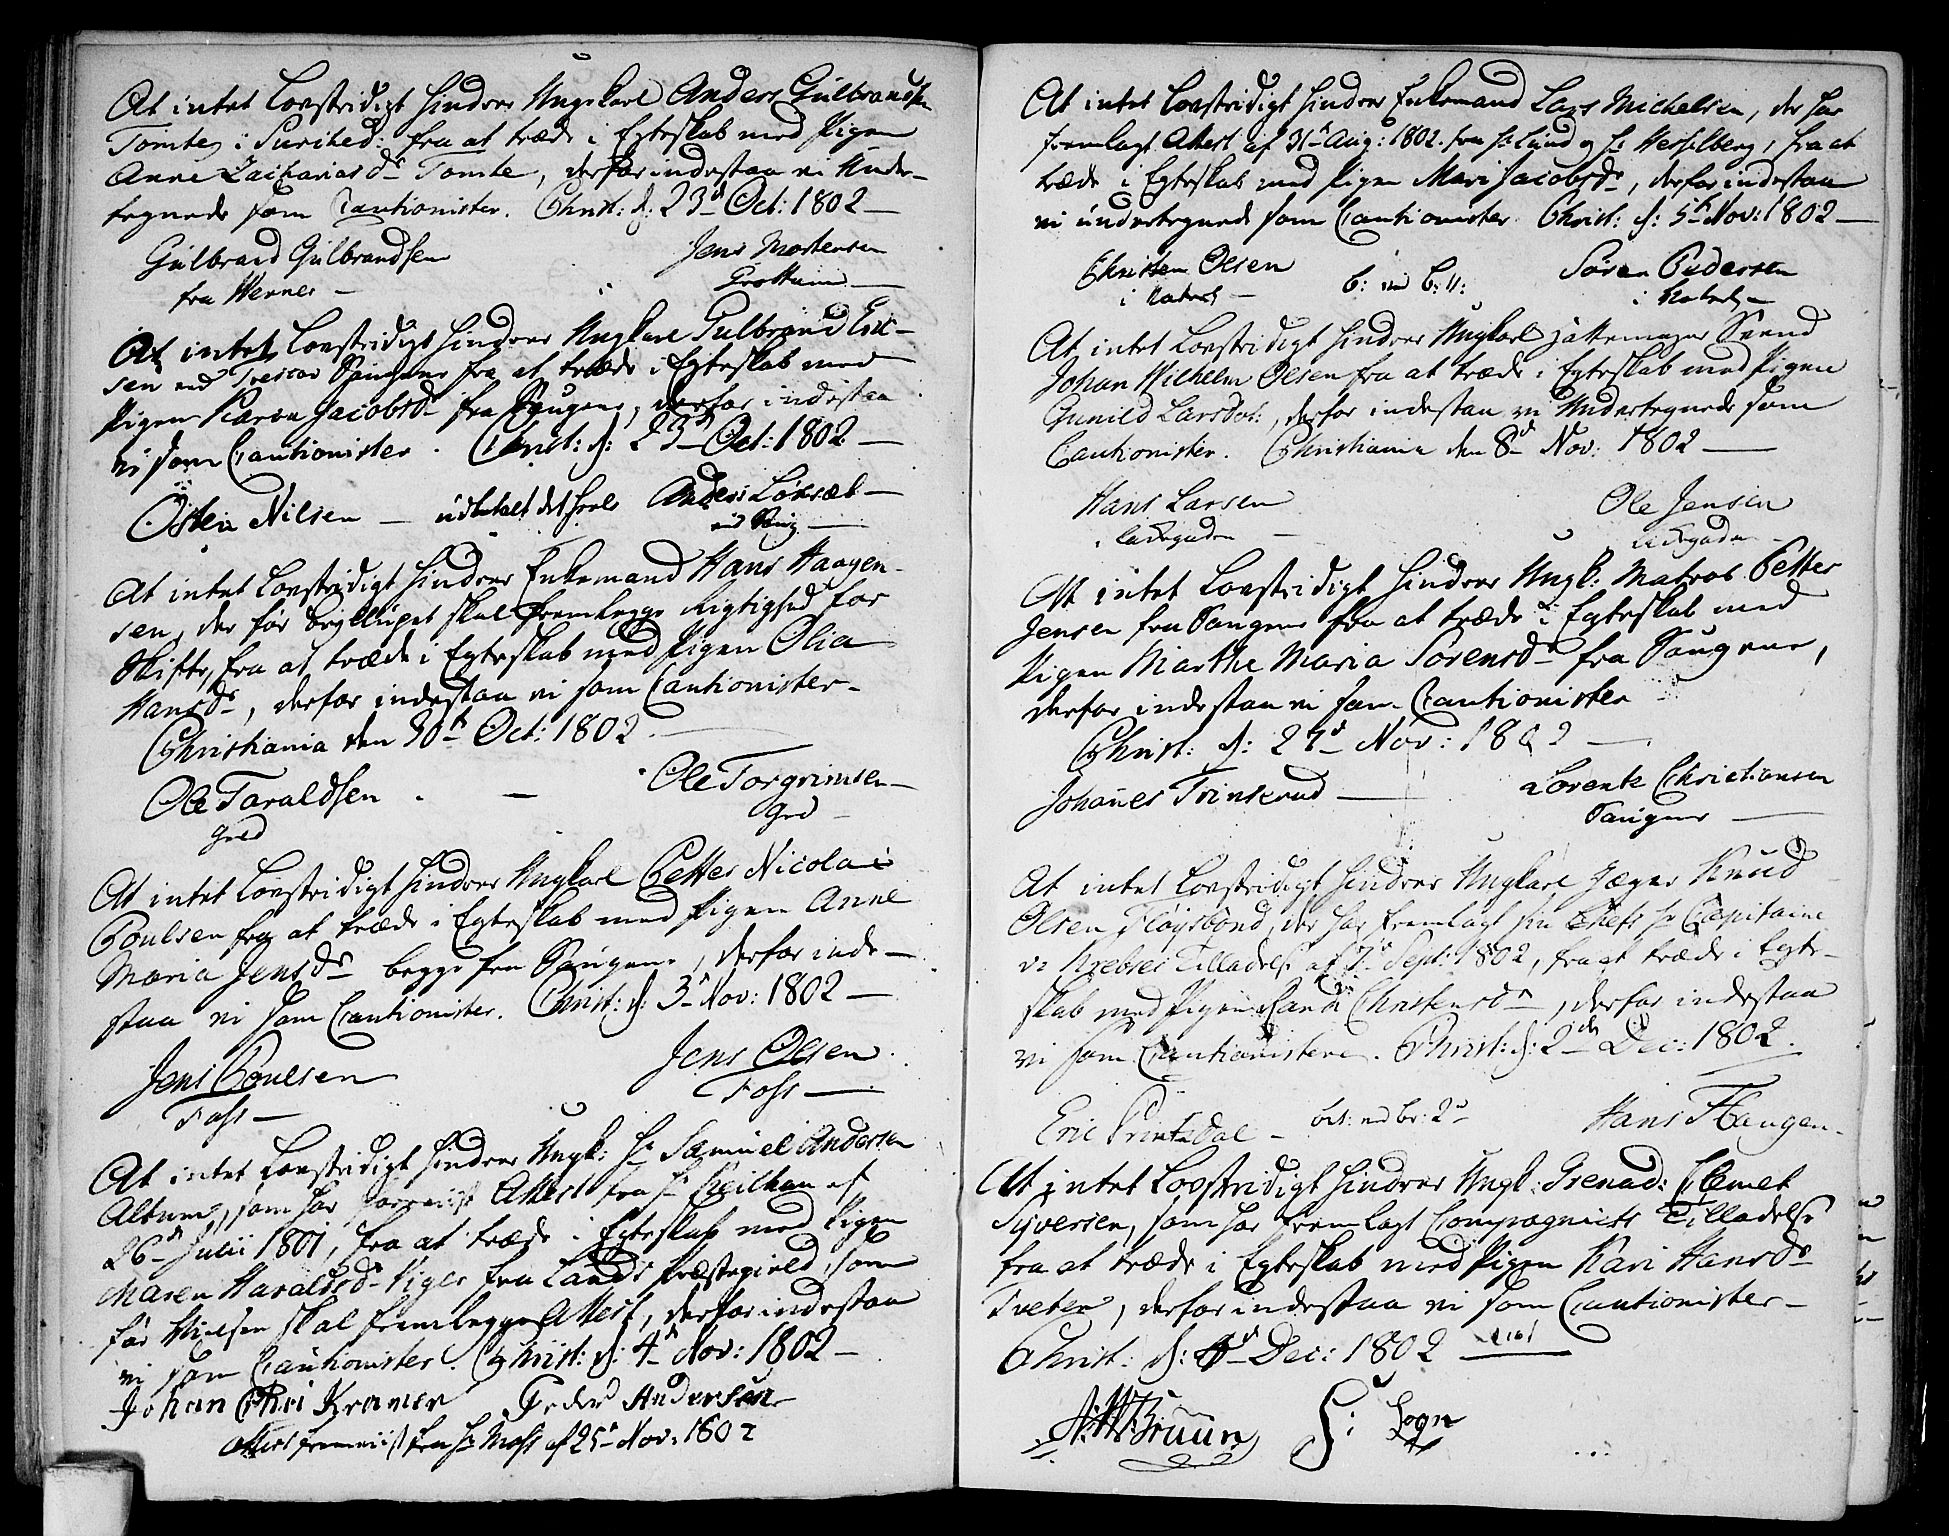 At intet Lovstridigt hindrer Ungekarl Anders Gulbrandsen
Tomte i fra at træde i Egteskab med Pigen
Anne Zachariasdr Tomte, derfor indestaa vi Under-
tegnede som Cautionister. Christ: d: 23d Oct: 1802 —
Gulbrand Gulbrandsen Jens Mortensen
fra Werner — Grottum —
At intet Lovstridigt hindrer Ungkarl Gulbrand Eric-
sen ved fra at træde i Egteskab med
Pigen Karen Jacobsdr fra Saugene, derfor indestaa
vi som Cautionister. Christ: d: 23d Oct: 1802 —
Osten Nilsen — udbetalt det heele Anders
ved Saug —
At intet Lovstridigt hindrer Enkemand Hans Haagen-
sen, der før brylluppet skal fremlegge Rigtighed for
Skifte, fra at træde i Egteskab med Pigen Olia
Hansdr, derfor indestaa vi som Cautionister.
Christiania den 30te Oct: 1802.
Ole Taraldsen — Ole Torgrimsen —
At intet Lovstridigt hindrer Ungkarl Petter Nicolai
Poulsen fra at træde i Egteskab med Pigen Anne
Maria Jensdr begge fra Saugene, derfor inde-
staa vi som Cautionister. Christ: d: 3d Nov: 1802 —
Jens Poulsen Jens Olsen
Foss — Foss —
At intet Lovstridigt hindrer Ungk: Hr Samuel Andersen
som har Attest fra Hr Keilhau af
26d Julii 1801, fra at træde i Egteskab med Pigen
Maren Haraldsdr fra Lands Præstegield, som
før Vielsen skal fremlegge Attest, derfor indestaa
vi som Cautionister. Christ: d: 4d Nov: 1802 —
Johan Chri Kramer Peder Andersen
Attest fremviist fra Hr Moss af 25d Nov: 1802
At intet Lovstridigt hindrer Enkemand Lars Michelsen, der har
fremlagt Attest af 31d Aug: 1802 fra Hr Lund og Hr Hesselberg, fra at
træde i Egteskab med Pigen Mari Jacobsdr, derfor indestaa
vi undertegnede som Cautionister Christ: d: 5te Nov: 1802 —
Christen Olsen Sören Pedersen
At intet Lovstridigt hindrer Ungkarl Svend
Johan Wilhelm Olsen fra at træde i Egteskab med Pigen
Gunild Larsdot:, derfor indestaa vi Undertegnede som
Cautionister. Christiania den 8d Nov: 1802 —
Hans Larsen Ole Jensen
Ladegaden — Ladegaden —
At intet Lovstridigt hindrer Ungk: Matros Petter
Jensen fra Saugene fra at træde i Egteskab med
Pigen Marthe Maria Sörensdr fra Saugene,
derfor indestaa vi som Cautionister
Christ: d: 27d Nov: 1802 —
Johannes Trinserud — Lorentz Christiansen
Saugene —
At intet Lovstridigt hindrer Ungkarl Jæger Knud
Olsen Fløysbond, der har fremlagt sin Chefs Hr Capitaine
v: Krebses Tilladelse af 7d Sept: 1802, fra at træde i Egte-
skab med Pigen Christensdr, derfor indestaa
vi som Cautionistere. Christ: d: 2den Dec: 1802.
Eric — bet: ved br: 2d Hans Haugen.
At intet Lovstridigt hindrer Ungk: Grenad: Clemet
Syversen, som har fremlagt Compagniets Tilladelse
fra at træde i Egteskab med Pigen Kari Hansdr
Tveter, derfor indestaa vi som Cautionister —
Christ: d: Dec: 1802
Bruun S: Sogn